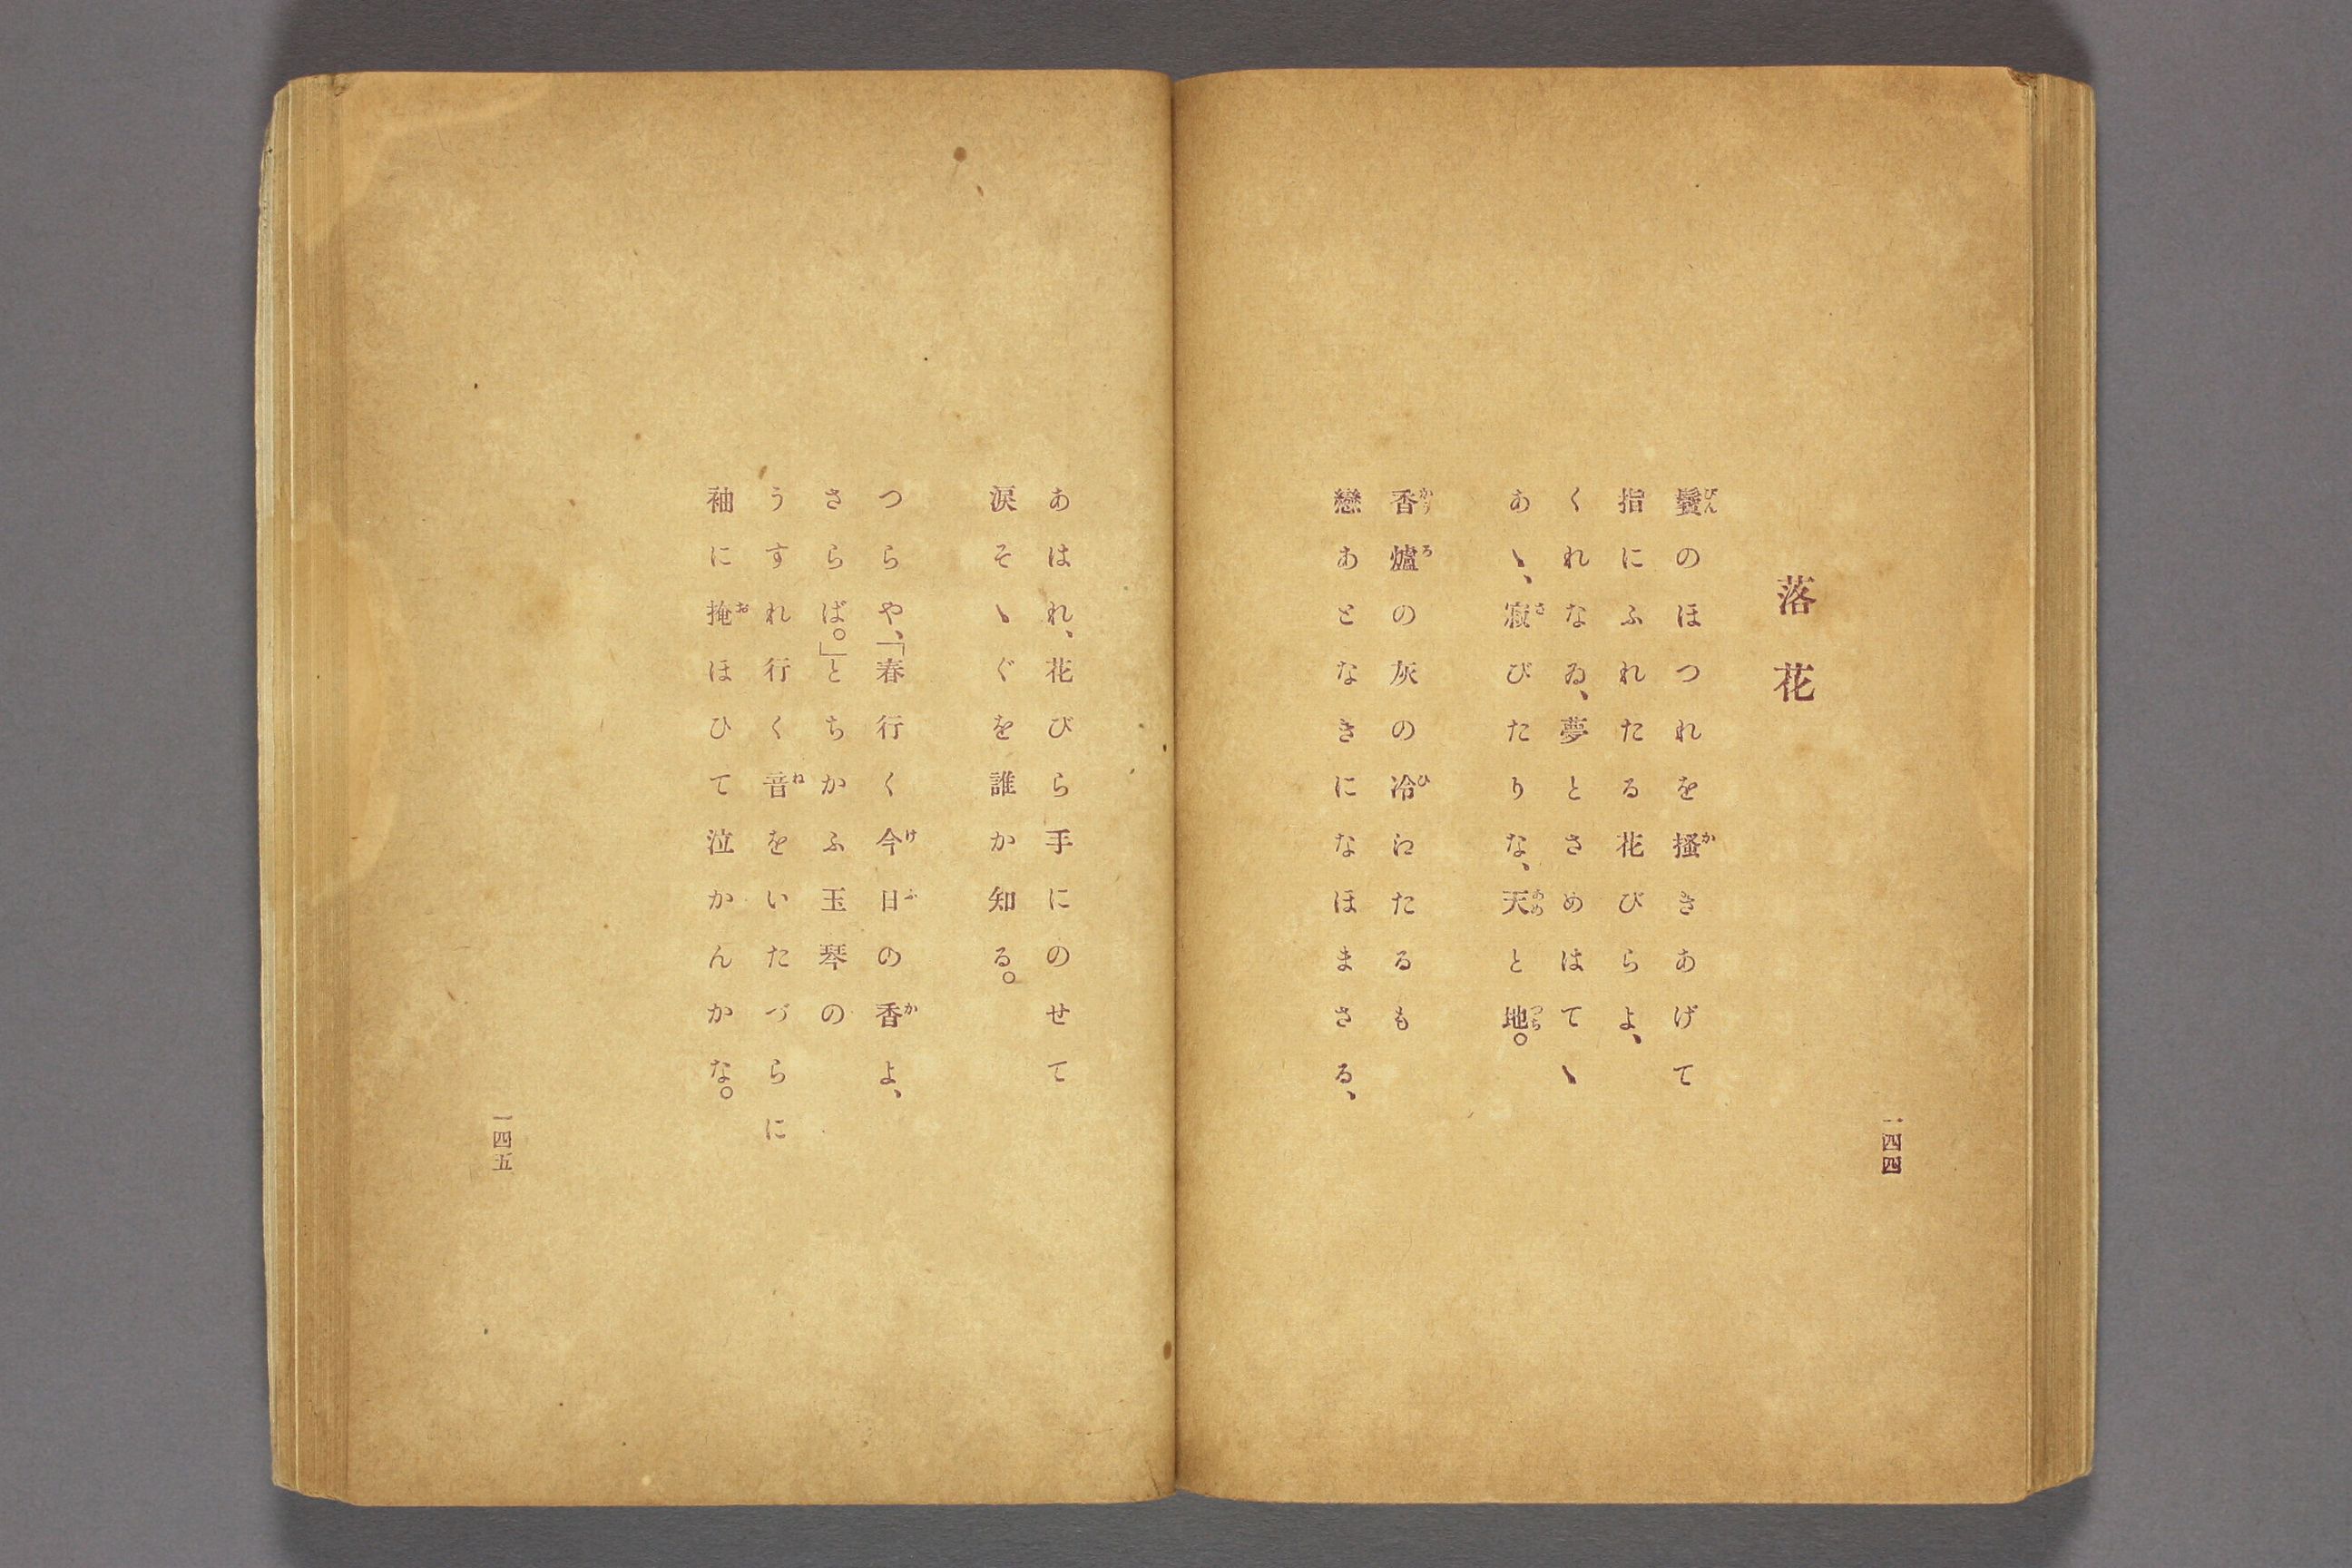 落花
鬢のほつれを掻きあげて
指にふれたる花びらよ、
くれなゐ、夢とさめはてゝ
あゝ、寂びたりな、天と地。
香爐の灰の冷わたるも
戀あとなきになほまさる、
一四四
あはれ、花びら手にのせて
涙そゝぐを誰か知る。
つらや、「春行く今日の香よ、
さらば。」とちかふ玉琴の
うすれ行く音をいたづらに
袖に掩ほひて泣かんかな。
一四五